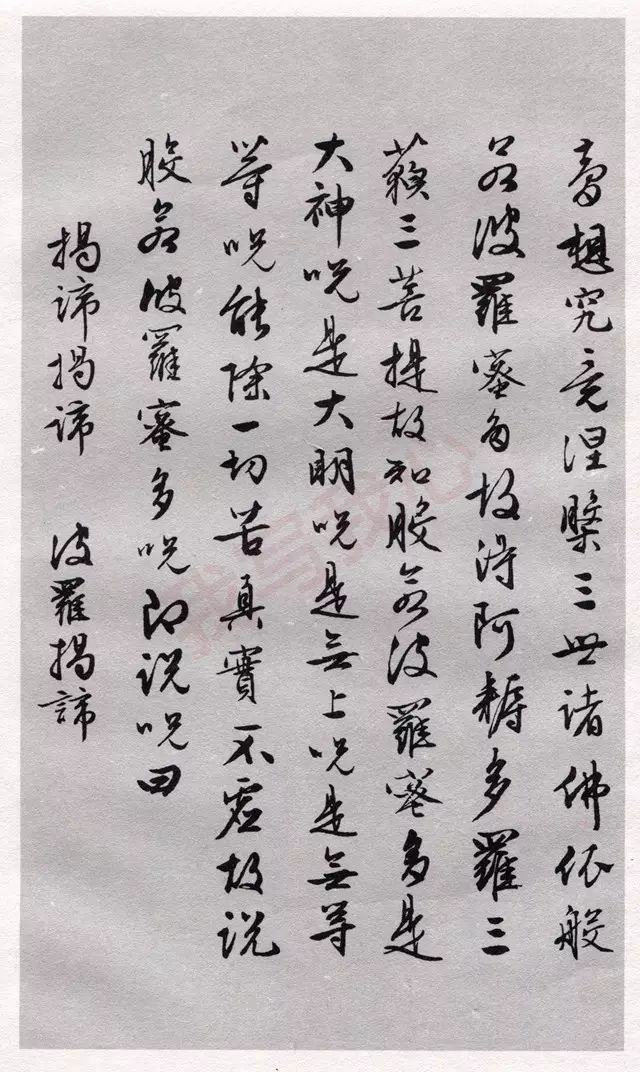 夢想究竟涅槃三世諸佛依般
若波羅蜜多故得阿耨多羅三
藐三菩提故知般若波羅蜜多是
大神咒是大明咒是無上咒是無等
等咒能除一切苦真實不虛故说
般若波羅蜜多咒即说咒曰
揭諦揭諦 波羅揭諦
我写我心